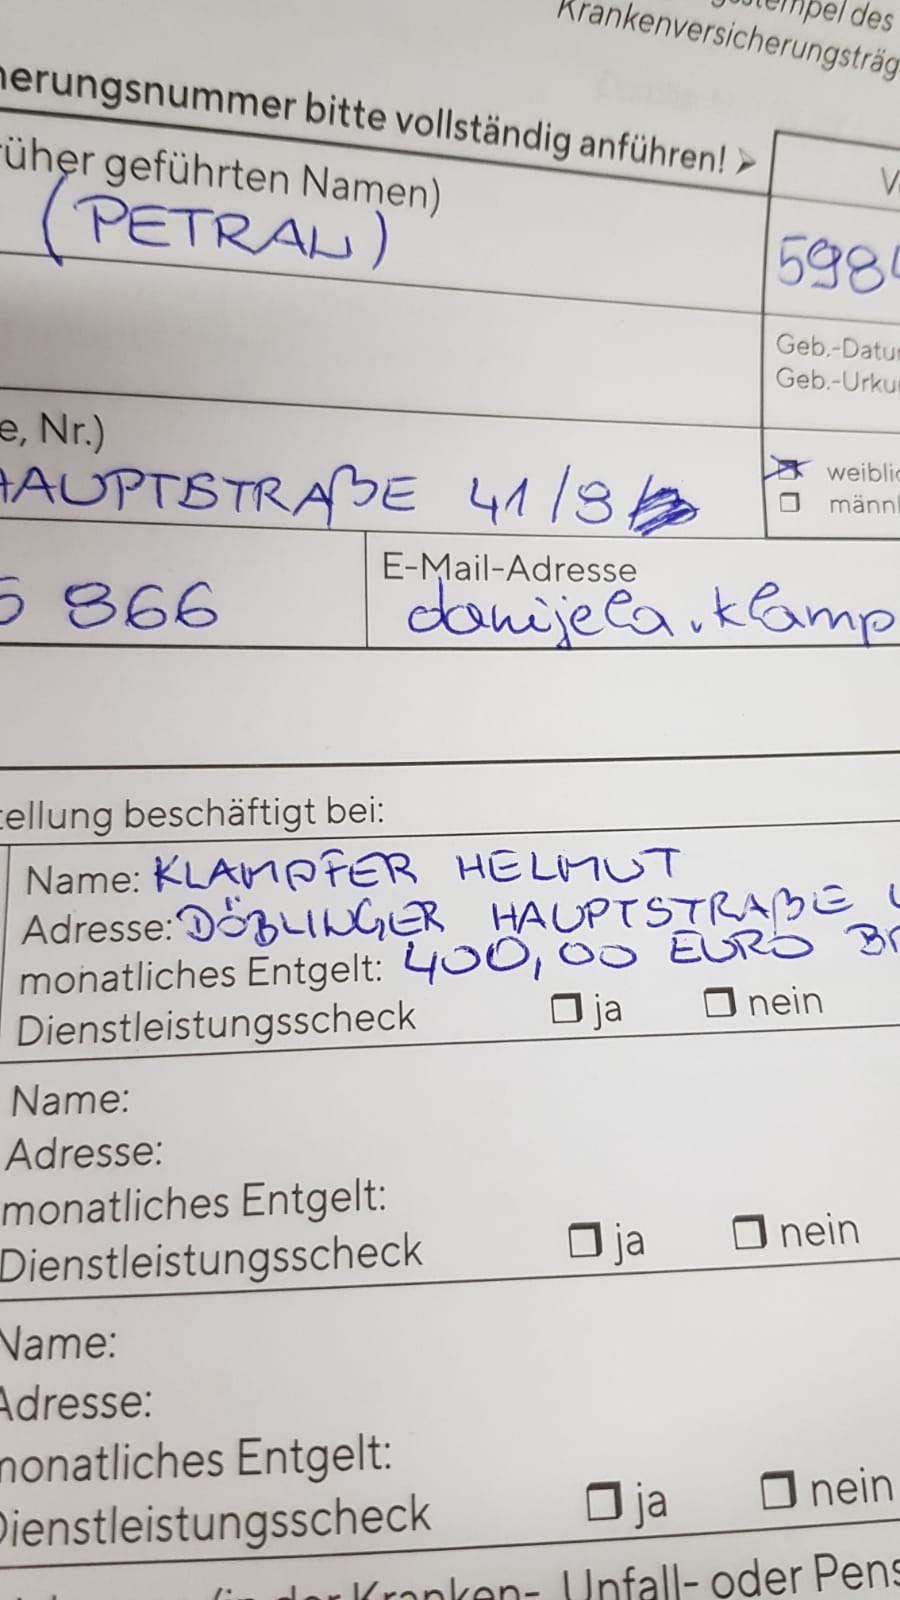 stempel des
Krankenversicherungsträg
herungsnummer bitte vollständig anführen! ➢
rüher geführten Namen)
(PETRAL)
5984
Geb.-Datu
Geb.-Urku
e, Nr.)
HAUPTSTRAßE 41/9
☒ weiblic
☐ männl
5 866
E-Mail-Adresse
danijela.klamp
tellung beschäftigt bei:
Name: KLAMPFER HELMUT
Adresse: DÖBLINGER HAUPTSTRAßE
monatliches Entgelt: 400,00 EURO BR
Dienstleistungsscheck ☐ ja ☐ nein
Name:
Adresse:
monatliches Entgelt:
Dienstleistungsscheck ☐ ja ☐ nein
Name:
Adresse:
monatliches Entgelt:
Dienstleistungsscheck ☐ ja ☐ nein
(in der Kranken-, Unfall- oder Pens